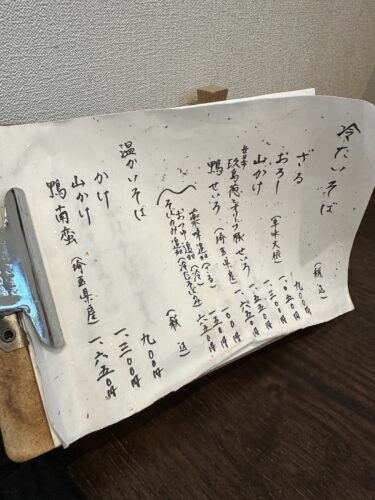 冷たいそば (税込)
ざる 九〇〇円
おろし(辛味大根) 一、〇五〇円
山かけ 一、三〇〇円
豚せいろ 一、五五〇円
鴨せいろ(埼玉県産) 一、六五〇円
薬味追加 一〇〇円
おつゆ追加(冷) 一五〇円
追加 六五〇円
温かいそば (税込)
かけ 九〇〇円
山かけ 一、三〇〇円
鴨南蛮(埼玉県産) 一、六五〇円